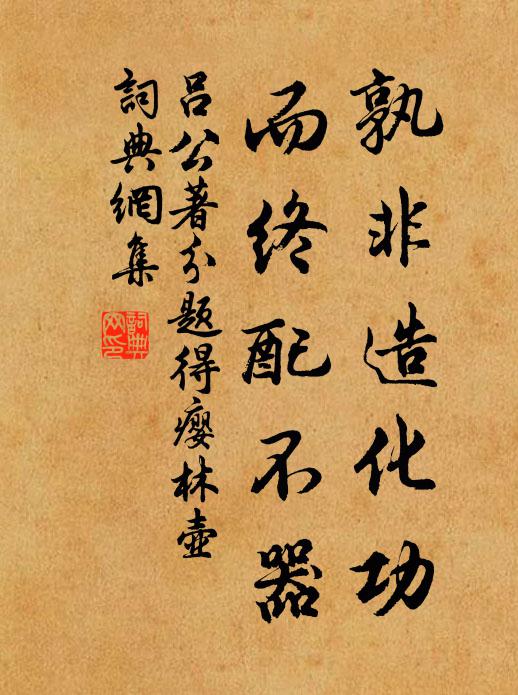 孰非造化功
而终配不器
吕公著分题得瘿林壶
词典網集
詞典
网印